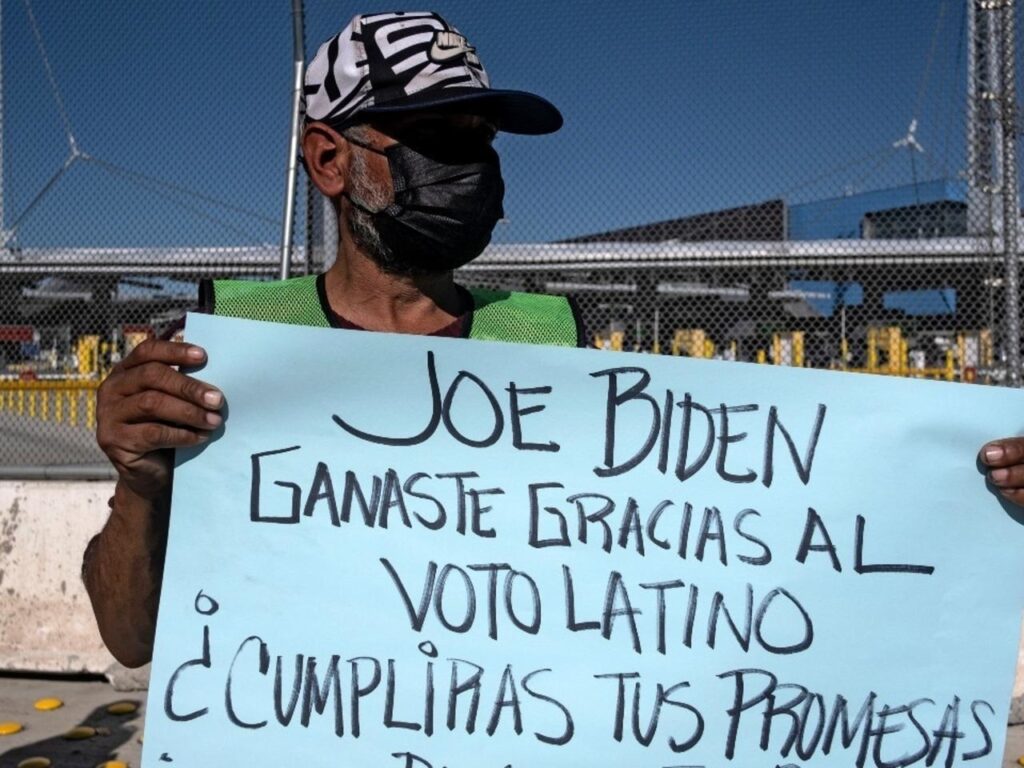 NIKE
JOE BIDEN
GANASTE GRACIAS AL
VOTO LATINO
¿CUMPLIRAS TUS PROMESAS